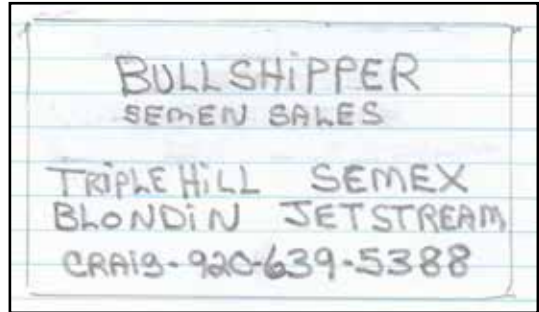 BULLSHiPPER
SEMEN SALES
TRIPLE HiLL SEMEX
BLONDiN JETSTREAM
CRAIG-920-639-5388